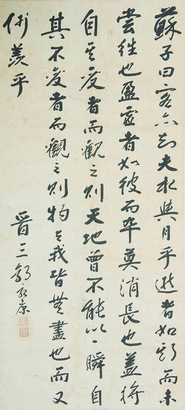 蘇子曰客亦知夫水與月乎逝者如斯而未
嘗往也盈虛者如彼而卒莫消長也蓋將
自其變者而觀之則天地曾不能以一瞬自
其不變者而觀之則物與我皆無盡也而又
何羨乎
晉三郭康